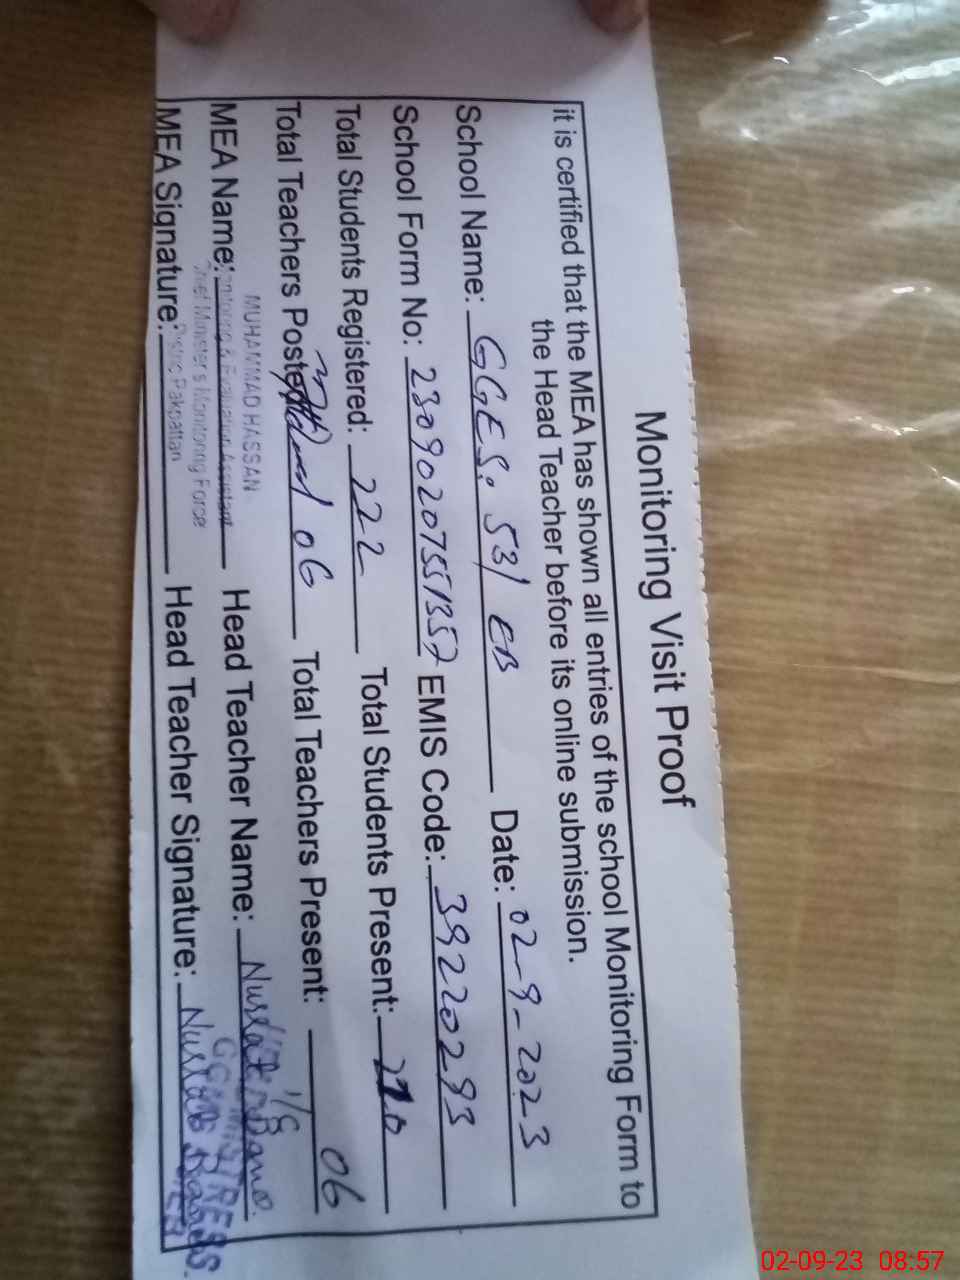 Monitoring Visit Proof
it is certified that the MEA has shown all entries of the school Monitoring Form to
the Head Teacher before its online submission.
School Name: GGES. 53/ EB Date: 02-9-2023
School Form No: EMIS Code: 39220293
Total Students Registered: 222 Total Students Present:
Total Teachers Posted 06 Total Teachers Present: 06
MUHAMMAD HASSAN
MEA Name: Monitoring & Evaluation Assistant Head Teacher Name: Nusrat Bano
Chief Minister's Monitoring Force
MEA Signature: District Pakpattan Head Teacher Signature: Nusrat Bano
02-09-23 08:57